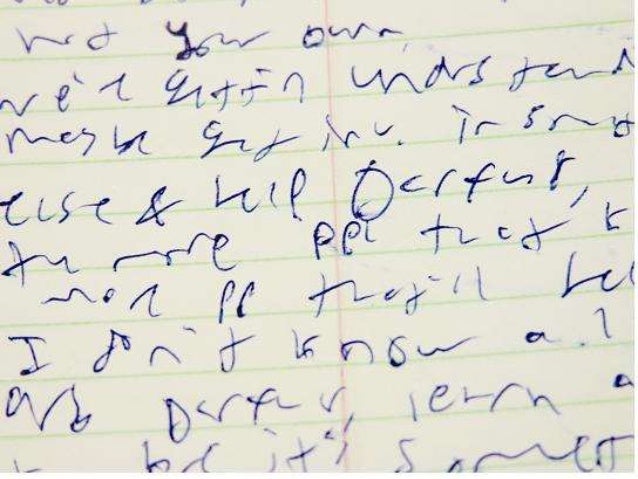 not your own
we'll gettin undrstand
maybe get inv. in som
else & help Darfur,
the more ppl that k
more pp that'll hel
I don't know al
ab Darfur, learn a
but it's somet